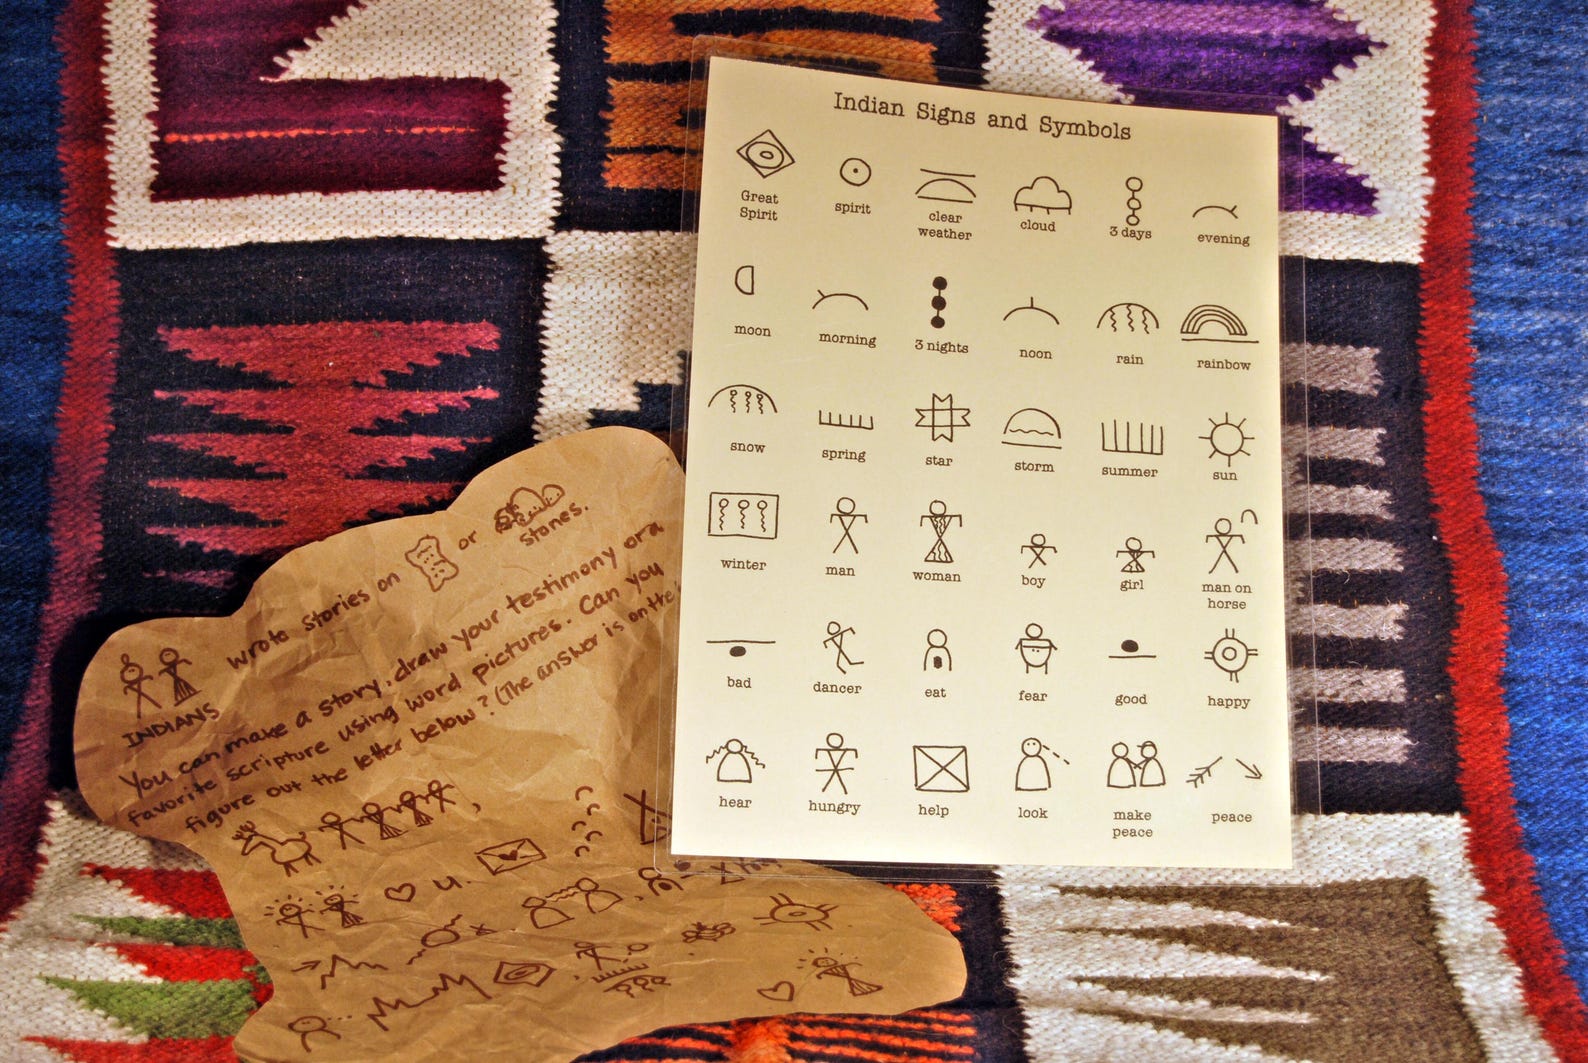 Indian Signs and Symbols
Great
Spirit
spirit
clear
weather
cloud
3 days
evening
moon
morning
3 nights
noon
rain
rainbow
snow
spring
star
storm
summer
sun
winter
man
woman
boy
girl
man on
horse
bad
dancer
eat
fear
good
happy
hear
hungry
help
look
make
peace
peace
INDIANS
wrote stories on
or
stones.
You can make a story, draw your testimony or a
favorite scripture using word pictures. Can you
figure out the letter below? (The answer is on the
u.